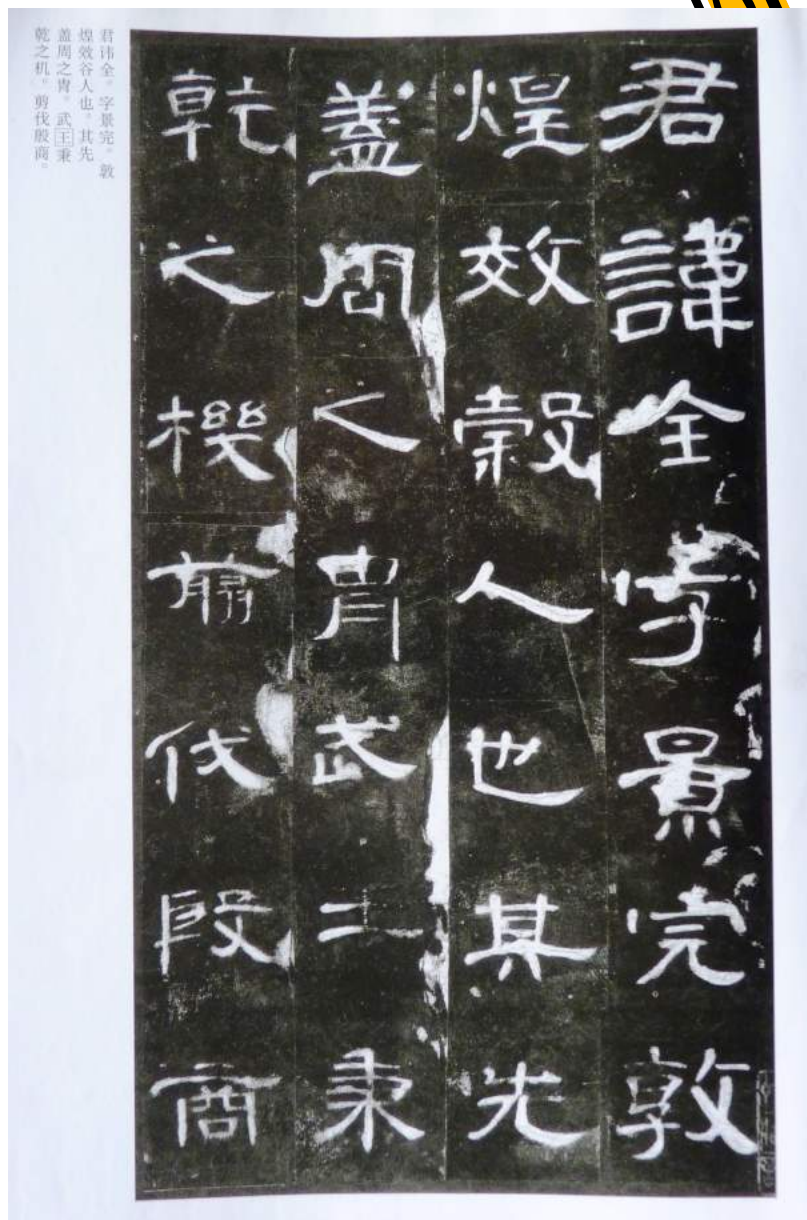 君諱全字景完敦
煌效穀人也其先
蓋周之胄武王秉
乾之機翦伐殷商
君讳全。字景完。敦
煌效谷人也。其先
盖周之胄。武王秉
乾之机。剪伐殷商。